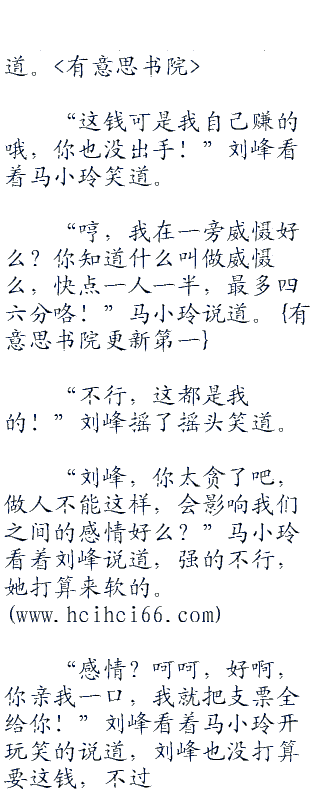 道。<有意思书院>
“这钱可是我自己赚的
哦，你也没出手！”刘峰看
着马小玲笑道。
“哼，我在一旁威慑好
么？你知道什么叫做威慑
么，快点一人一半，最多四
六分咯！”马小玲说道。{有
意思书院更新第一}
“不行，这都是我
的！”刘峰摇了摇头笑道。
“刘峰，你太贪了吧，
做人不能这样，会影响我们
之间的感情好么？”马小玲
看着刘峰说道，强的不行，
她打算来软的。
(www.hcihci66.com)
“感情？呵呵，好啊，
你亲我一口，我就把支票全
给你！”刘峰看着马小玲开
玩笑的说道，刘峰也没打算
要这钱，不过